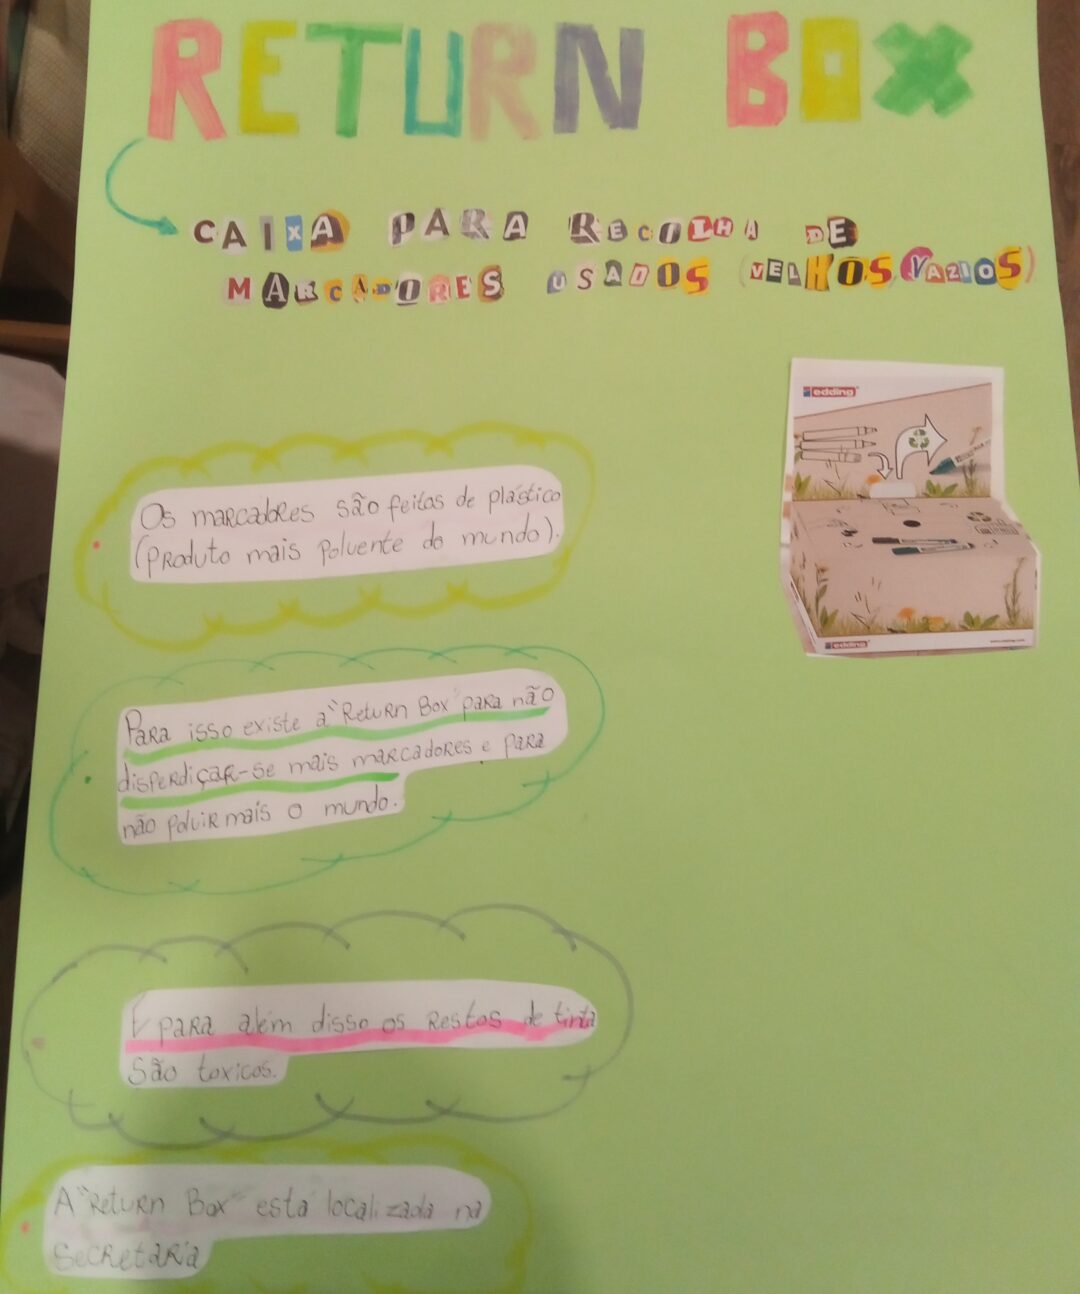 RETURN BOX
CAIXA PARA RECOLHA DE
MARCADORES USADOS (VELHOS/VAZIOS)
edding
Os marcadores são feitos de plástico
(produto mais poluente do mundo).
Para isso existe a "Return Box" para não
disperdiçar-se mais marcadores e para
não poluir mais o mundo.
edding
E para além disso os restos de tinta
são toxicos.
A "Return Box" está localizada na
Secretaria